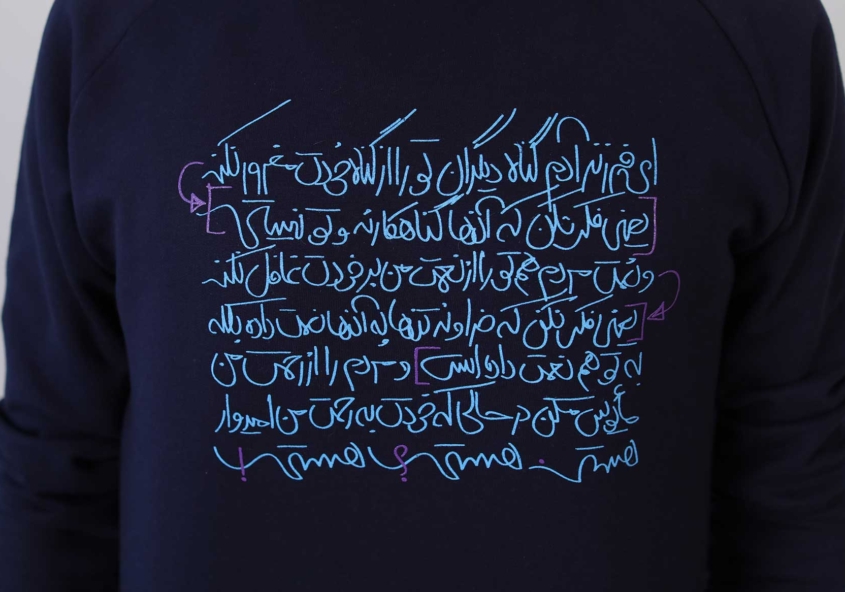 ای فرزند آدم گناه دیگران تو را از گناه خودت مغرور نکند
[یعنی فکر نکن که آنها گناهکارند و تو نیستی]
و نعمت مردم هم تو را از نعمت من بر خودت غافل نکند
[یعنی فکر نکن که خداوند تنها به آنها نعمت داده بلکه
به تو هم نعمت داده است] و مردم را از رحمت من
مأیوس مکن در حالی که خودت به رحمت من امیدوار
هستی. هستی؟ هستی!